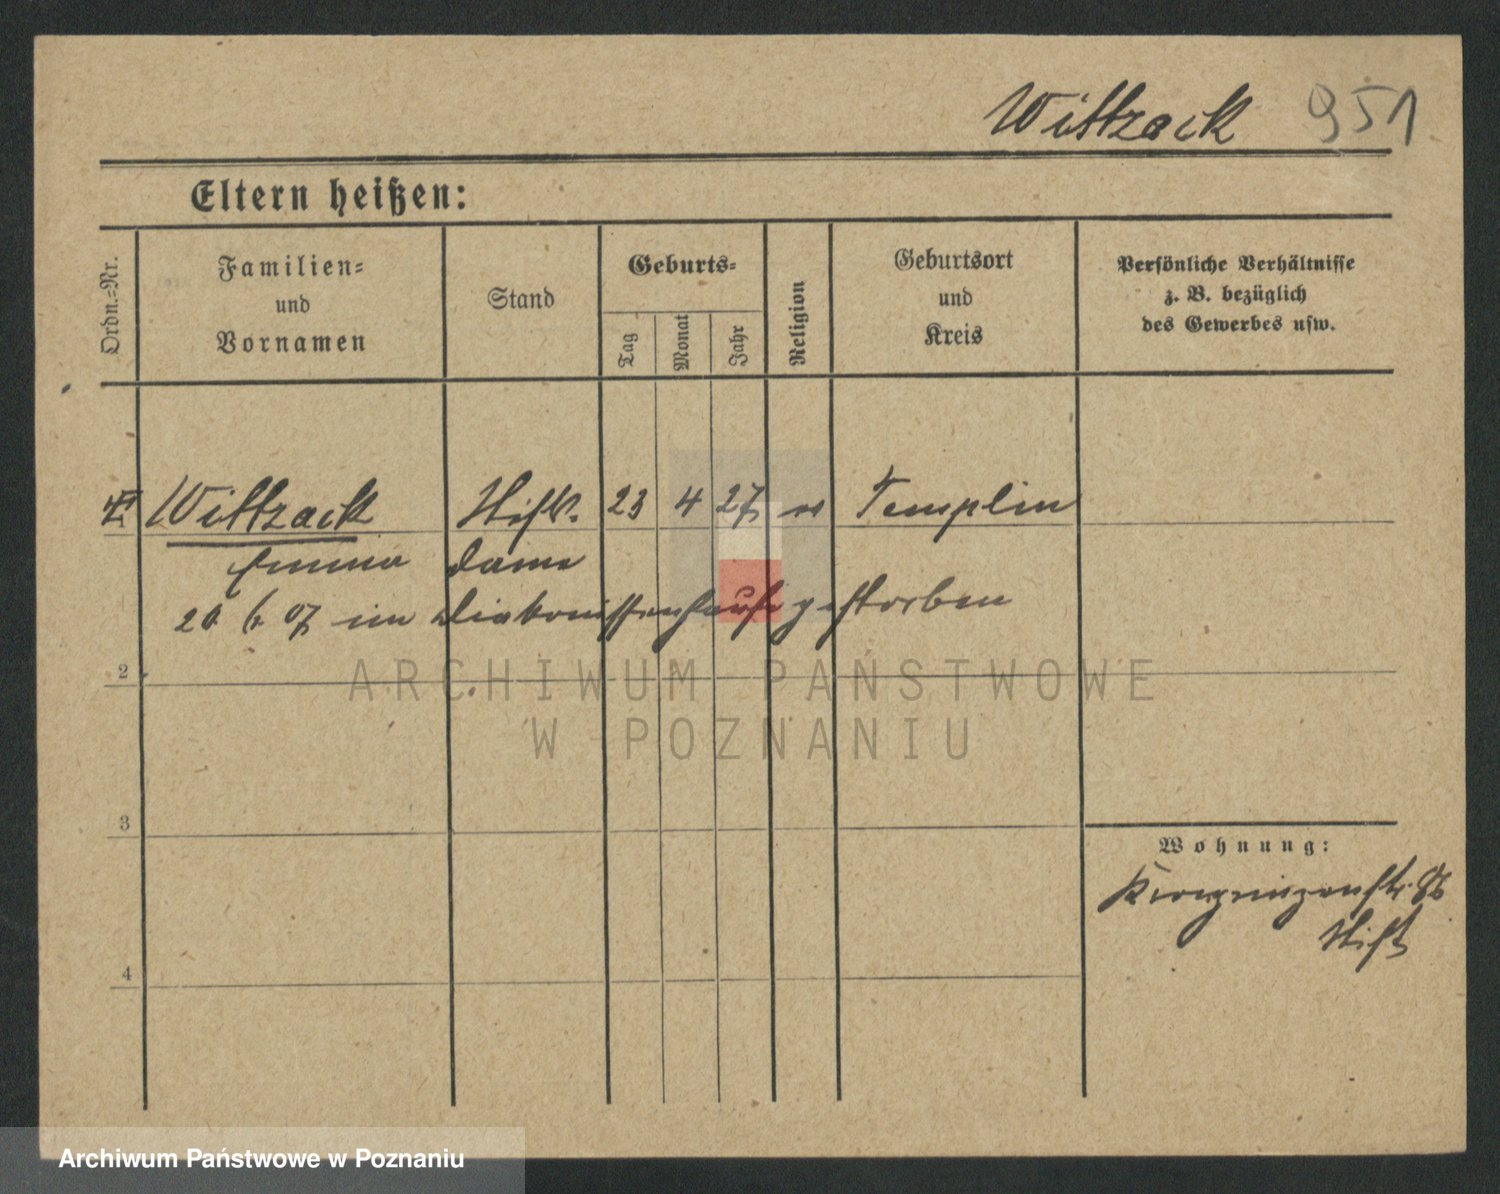 Wittzack 951
Eltern heißen:
Ordn.=Nr.
Familien=
und
Vornamen
Stand
Geburts=
Tag
Monat
Jahr
Religion
Geburtsort
und
Kreis
Persönliche Verhältnisse
z. B. bezüglich
des Gewerbes usw.
Wittzack Stifts. 23 4 27 Templin
Emma dame
20. 6. 07 im Diakonissenhause gestorben
2
ARCHIWUM PAŃSTWOWE
W POZNANIU
3
Wohnung:
Kronprinzenstr.
Stift
4
Archiwum Państwowe w Poznaniu